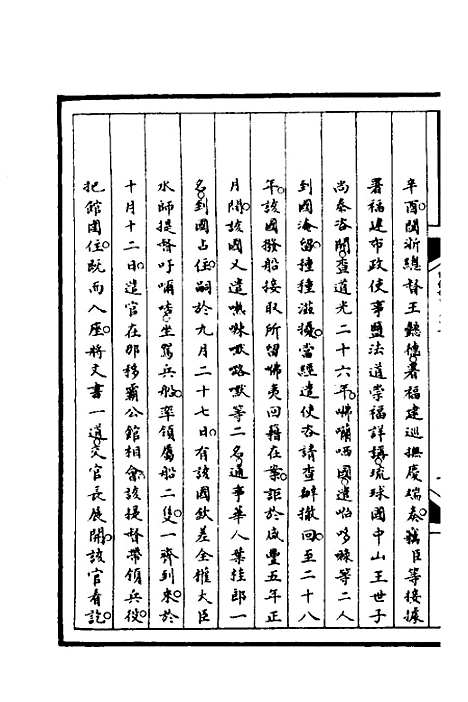 辛酉閩浙總督王懿德署福建巡撫慶瑞奏竊臣等接據
署福建布政使事鹽法道崇福詳議琉球國中山王世子
尚泰咨開查道光二十六年㗦囒哂國遣咍哆祿等二人
到國淹留種種滋擾當經遣使咨請查辦撤回至二十八
年該國撥船接取所留㗦夷回籍在案詎於咸豐五年正
月間該國又遣噅咪㖼路㖼等二名通事華人葉桂郎一
名到國占住嗣於九月二十七日有該國欽差全權大臣
水師提督吁嘣唥坐駕兵船率領屬船二隻一齊到來於
十月十二日遣官在那移霸公館相會該提督帶領兵役
把館圍住既而入座將文書一道交官長展開該官看訖